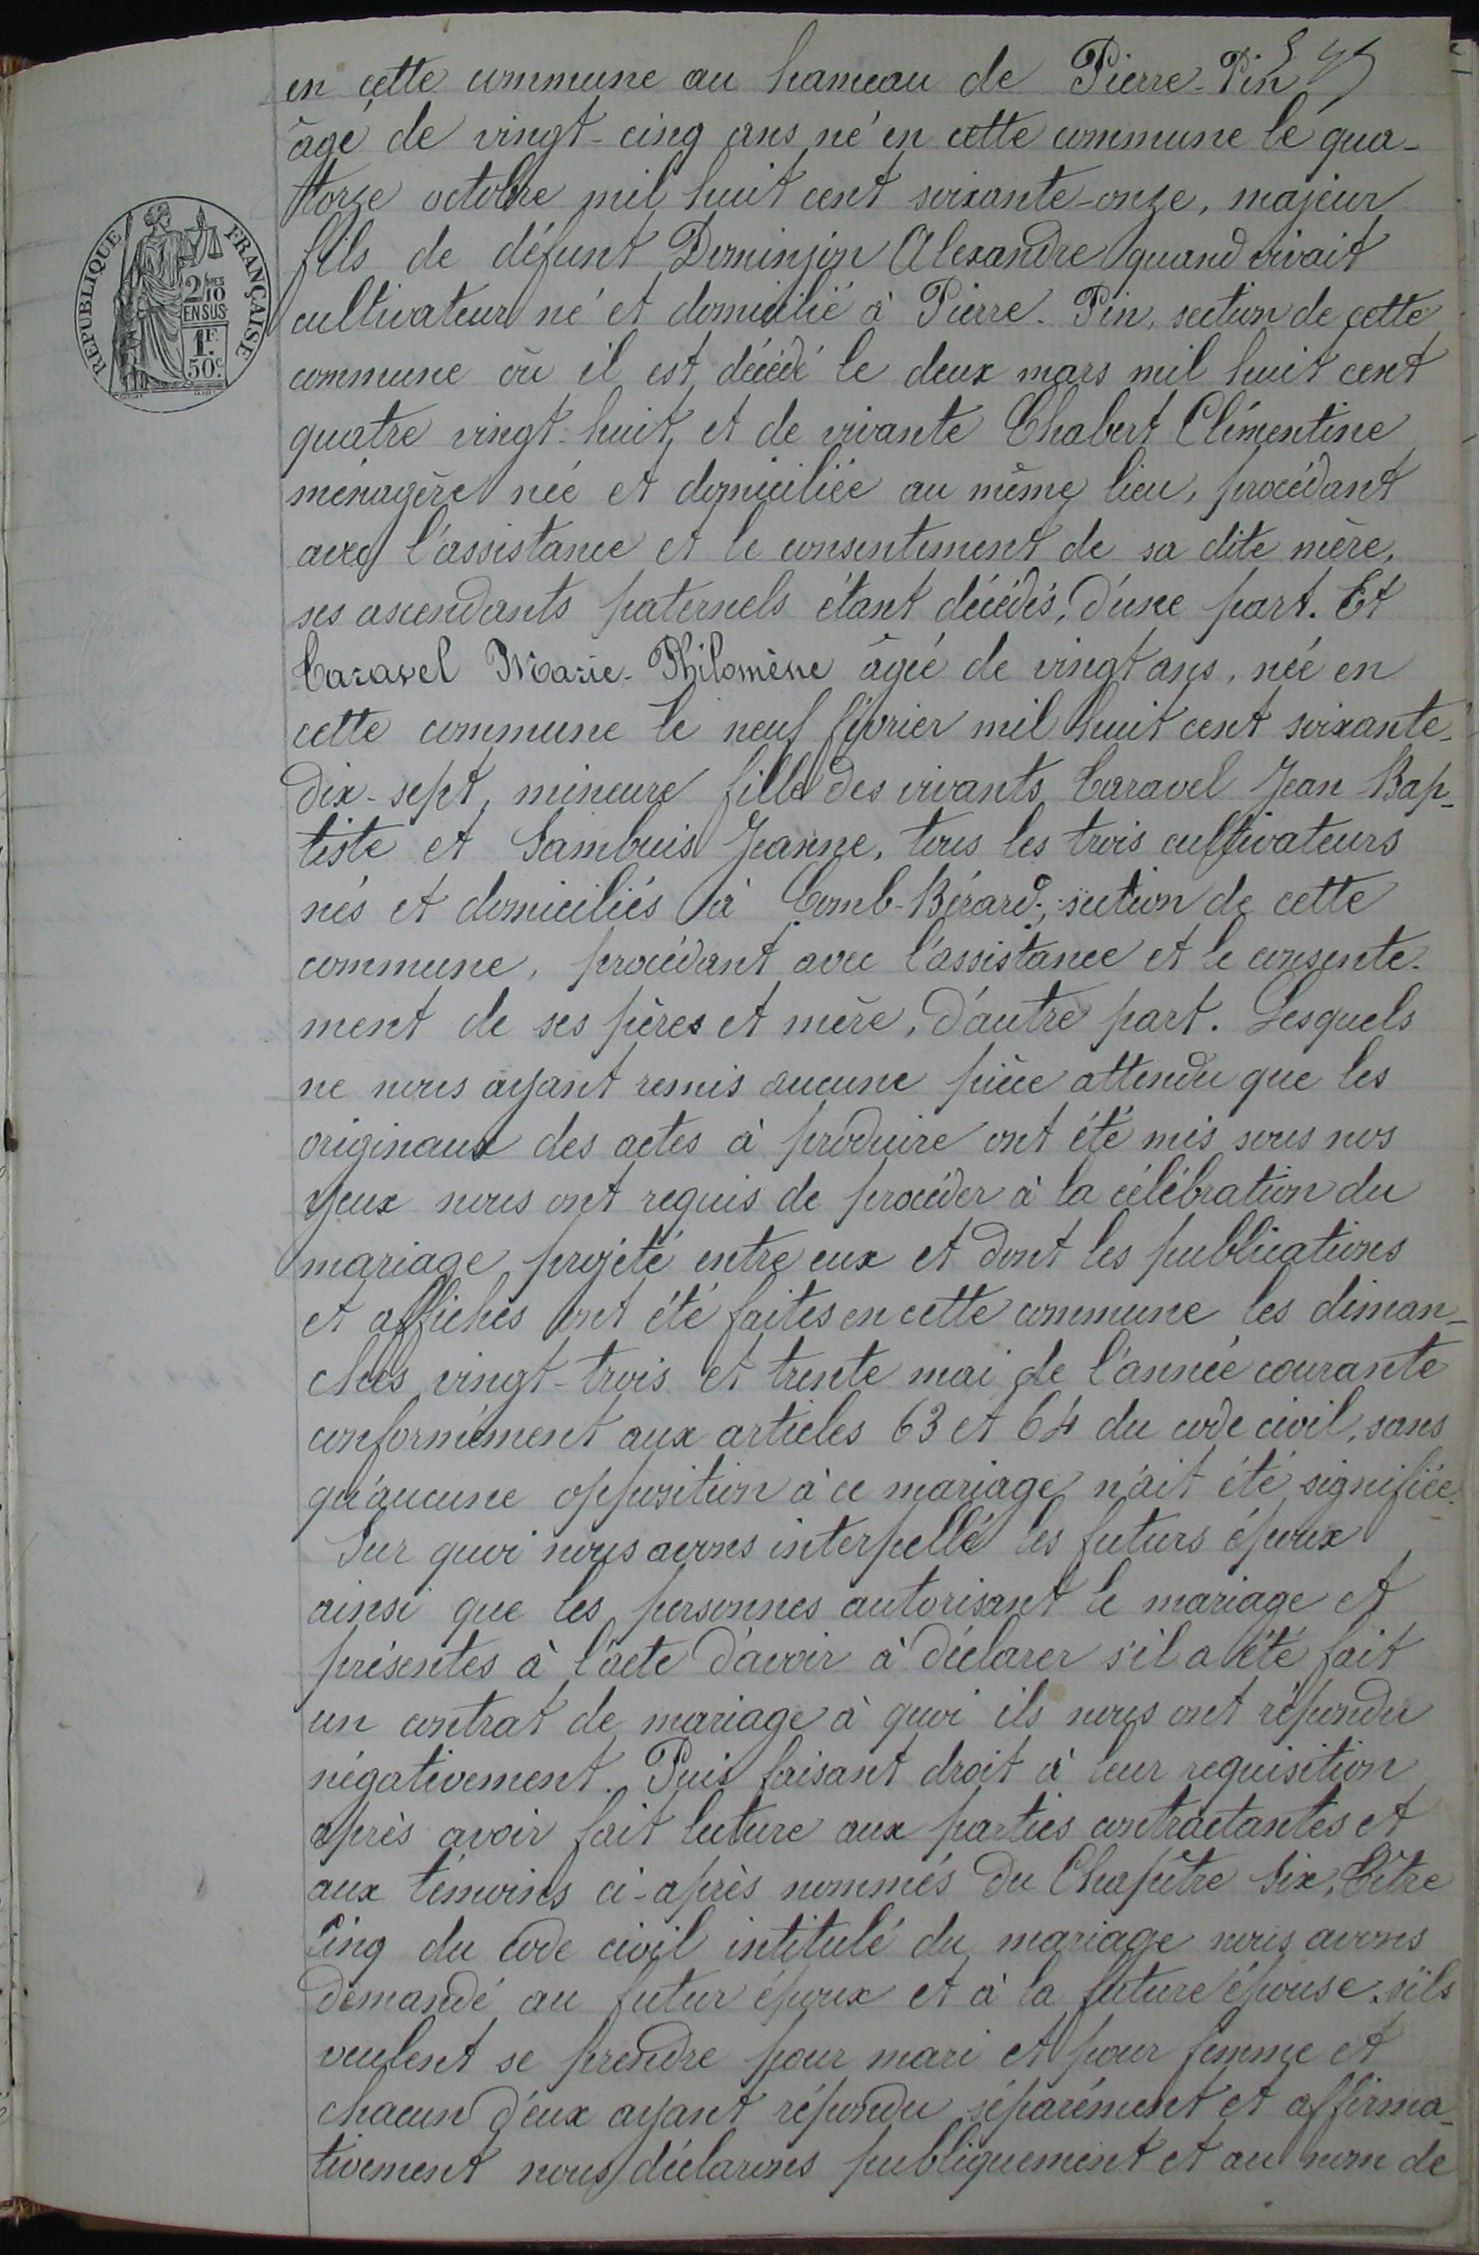 en cette commune au hameau de Pierre-Pin
âgé de vingt-cinq ans né en cette commune le qua-
torze octobre mil huit cent soixante-onze, majeur
fils de défunt Dominjon Alexandre quand vivait
cultivateur né et domicilié à Pierre-Pin, section de cette
commune où il est décédé le deux mars mil huit cent
quatre vingt-huit, et de vivante Chabert Clémentine
ménagère née et domiciliée au même lieu, procédant
avec l'assistance et le consentement de sa dite mère,
ses ascendants paternels étant décédés, d'une part. Et
Caravel Marie-Philomène âgée de vingt ans, née en
cette commune le neuf février mil huit cent soixante-
dix-sept, mineure fille des vivants Caravel Jean Bap-
tiste et Sambuis Jeanne, tous les trois cultivateurs
nés et domiciliés à Comb-Bérard, section de cette
commune, procédant avec l'assistance et le consente-
ment de ses pères et mère, d'autre part. Lesquels
ne nous ayant remis aucune pièce attendu que les
originaux des actes à produire ont été mis sous nos
yeux nous ont requis de procéder à la célébration du
mariage projeté entre eux et dont les publications
et affiches ont été faites en cette commune les diman-
ches vingt-trois et trente mai de l'année courante
conformément aux articles 63 et 64 du code civil, sans
qu'aucune opposition à ce mariage n'ait été signifiée.
Sur quoi nous avons interpellé les futurs époux
ainsi que les personnes autorisant le mariage et
présentes à l'acte d'avoir à déclarer s'il a été fait
un contrat de mariage à quoi ils nous ont répondu
négativement. Puis faisant droit à leur requisition
après avoir fait lecture aux parties contractantes et
aux témoins ci-après nommés du Chapître Six, Titre
Cinq du Code civil intitulé du mariage nous avons
demandé au futur époux et à la future épouse s'ils
veulent se prendre pour mari et pour femme et
chacun d'eux ayant répondu séparément et affirma-
tivement nous déclarons publiquement et au nom de
RÉPUBLIQUE FRANÇAISE
2/10
EN SUS
1F.
50c.